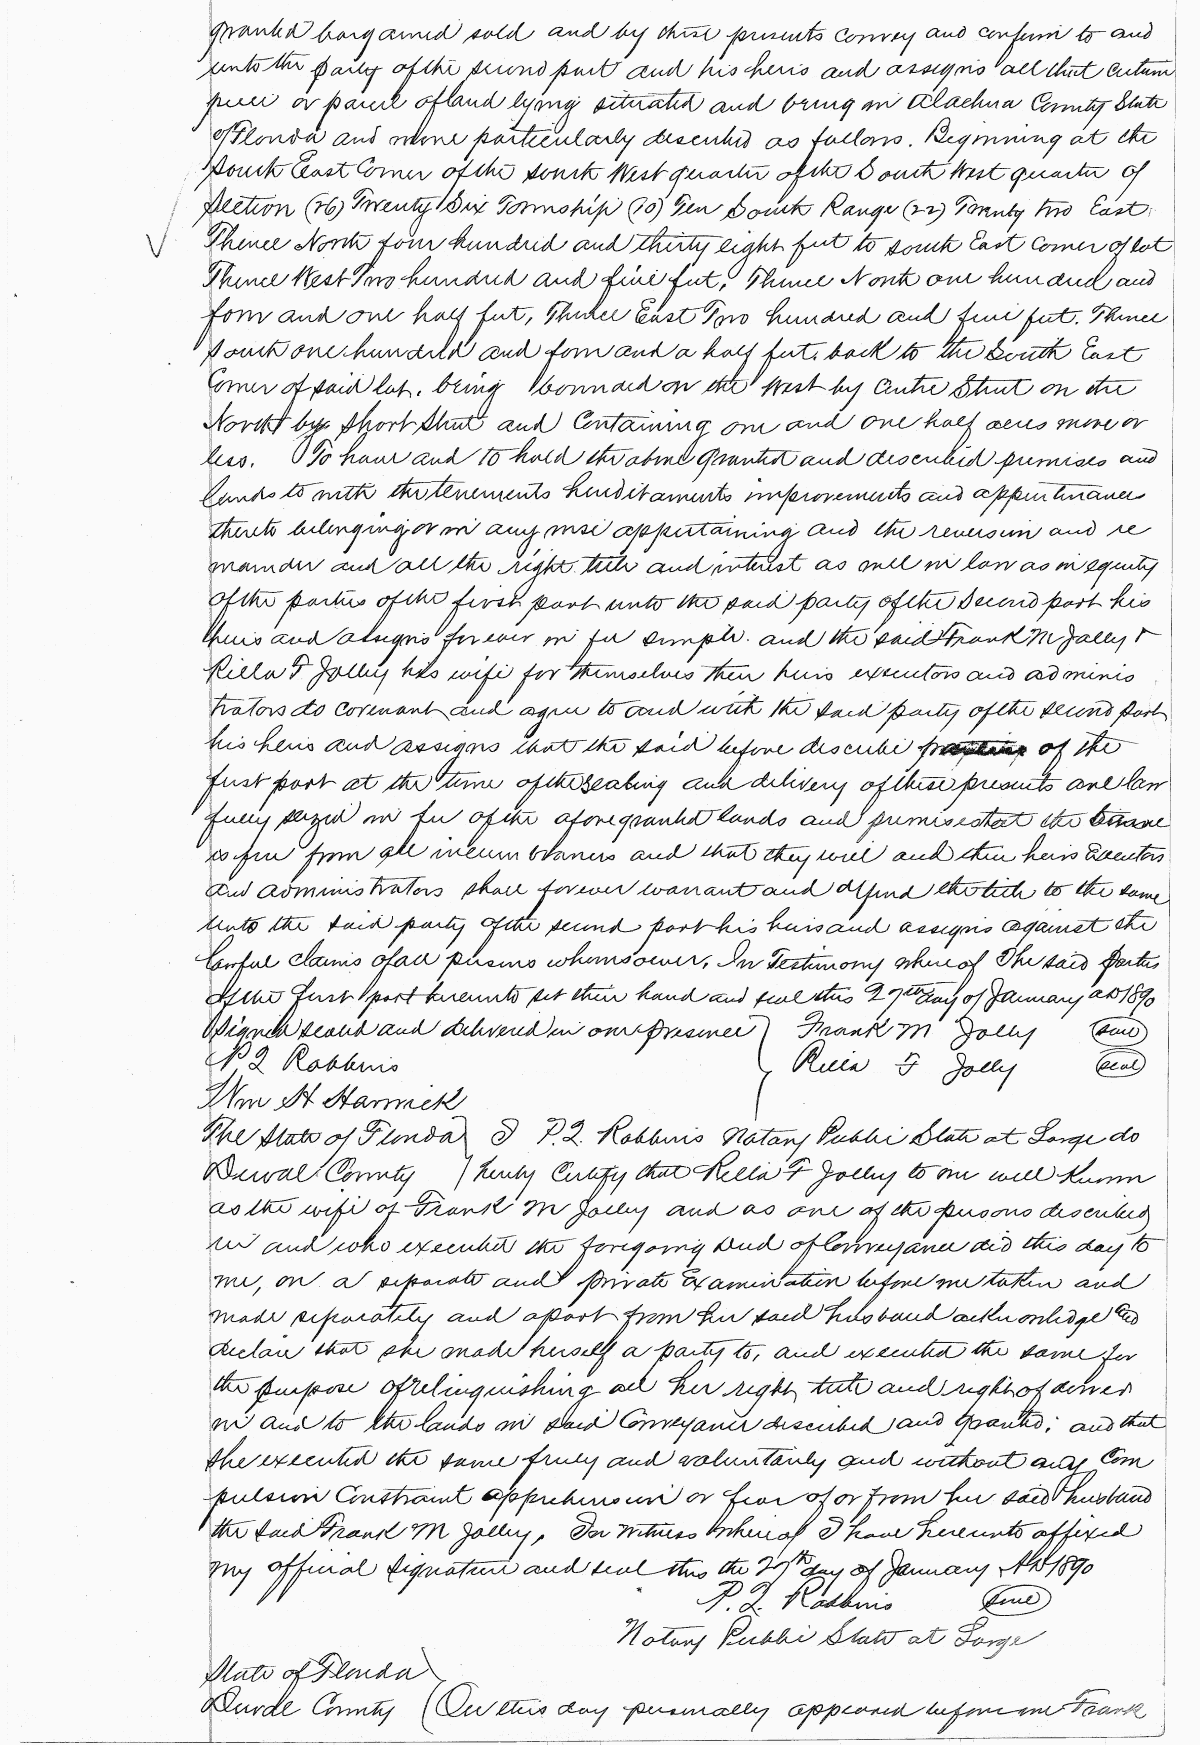 granted bargained sold and by these presents convey and confirm to and
unto the party of the second part and his heirs and assigns all that certain
piece or parcel of land lying situated and being in Alachua County State
of Florida and more particularly described as follows. Beginning at the
South East Corner of the South West quarter of the South West quarter of
Section (26) Twenty Six Township (10) Ten South Range (22) Twenty two East
Thence North four hundred and thirty eight feet to South East Corner of lot
Thence West Two hundred and five feet, Thence North one hundred and
four and one half feet, Thence East Two hundred and five feet. Thence
South one hundred and four and a half feet back to the South East
Corner of said lot. being bounded on the West by Centre Street on the
North by Short Street and Containing one and one half acres more or
less. To have and to hold the above granted and described premises and
lands to with the tenements hereditaments improvements and appurtinances
thereto belonging or in any wise appertaining and the reversion and re
mainder and all the right title and interest as well in law as in equity
of the parties of the first part unto the said party of the second part his
heirs and assigns forever in fee simple. and the said Frank M Jolley &
Rilla F Jolley his wife for themselves their heirs executors and adminis
trators do covenant and agree to and with the said party of the second part
his heirs and assigns that the said before describe of the
first part at the time of the sealing and delivery of these presents are law
fully seized in fee of the afore granted lands and premises that the same
is free from all incumbrances and that they will and their heirs Executors
and administrators shall forever warrant and defend the title to the same
unto the said party of the second part his heirs and assigns against the
lawful claims of all persons whomsoever. In Testimony whereof The said parties
of the first part hereunto set their hand and seal this 27th day of January AD 1890
Signed sealed and delivered in our presence } Frank M Jolley (seal)
P Q Robbins Rilla F Jolley (seal)
Wm H Harwick
The State of Florida } I P.Q. Robbins Notary Public State at Large do
Duval County } hereby Certify that Rilla F Jolley to me well Known
as the wife of Frank M Jolley and as one of the persons described
in and who executed the foregoing Deed of Conveyance did this day to
me, on a separate and private Examination before me taken and
made separately and apart from her said husband acknowledge and
declare that she made herself a party to, and executed the same for
the purpose of relinquishing all her right title and right of dower
in and to the lands in said Conveyance described and granted; and that
she executed the same freely and voluntarily and without any Com
pulsion Constraint apprehension or fear of or from her said husband
the said Frank M Jolley. In Witness whereof I have hereunto affixed
my official signature and seal this the 27th day of January AD 1890
P. Q. Robbins (seal)
Notary Public State at Large
State of Florida }
Duval County ( On this day personally appeared before me Frank